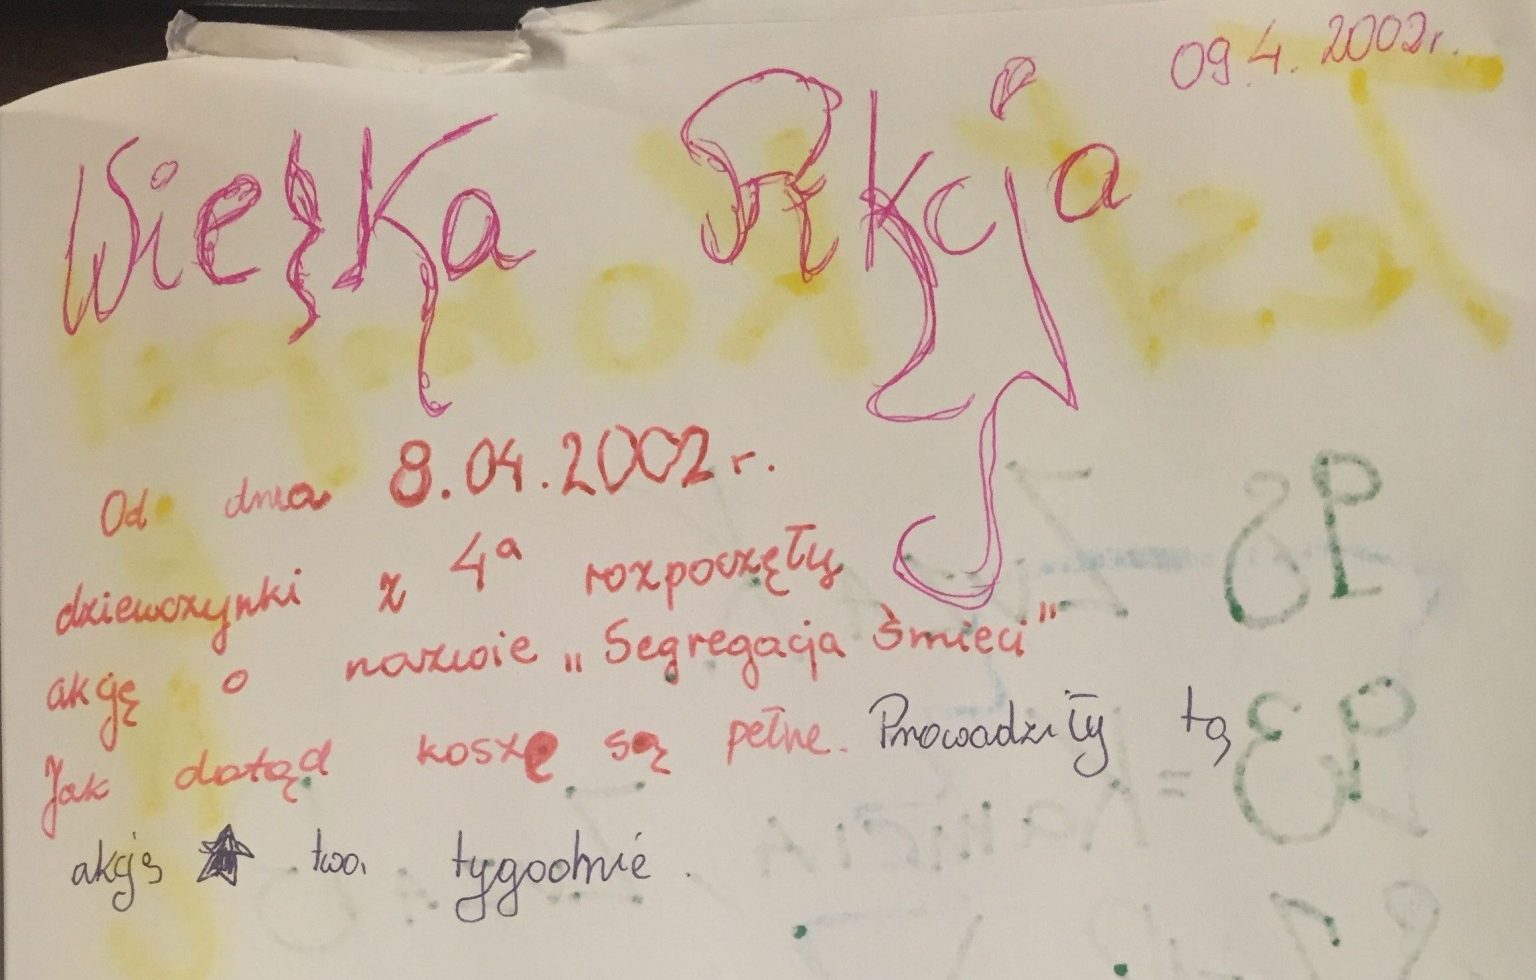 09.4.2002r.
Wielka Akcja
Od dnia 8.04.2002r.
dziewczynki z 4a rozpoczęły
akcję o nazwie „Segregacja śmieci”
Jak dotąd kosze są pełne. Prowadziły tą
akcję two. tygodnie.